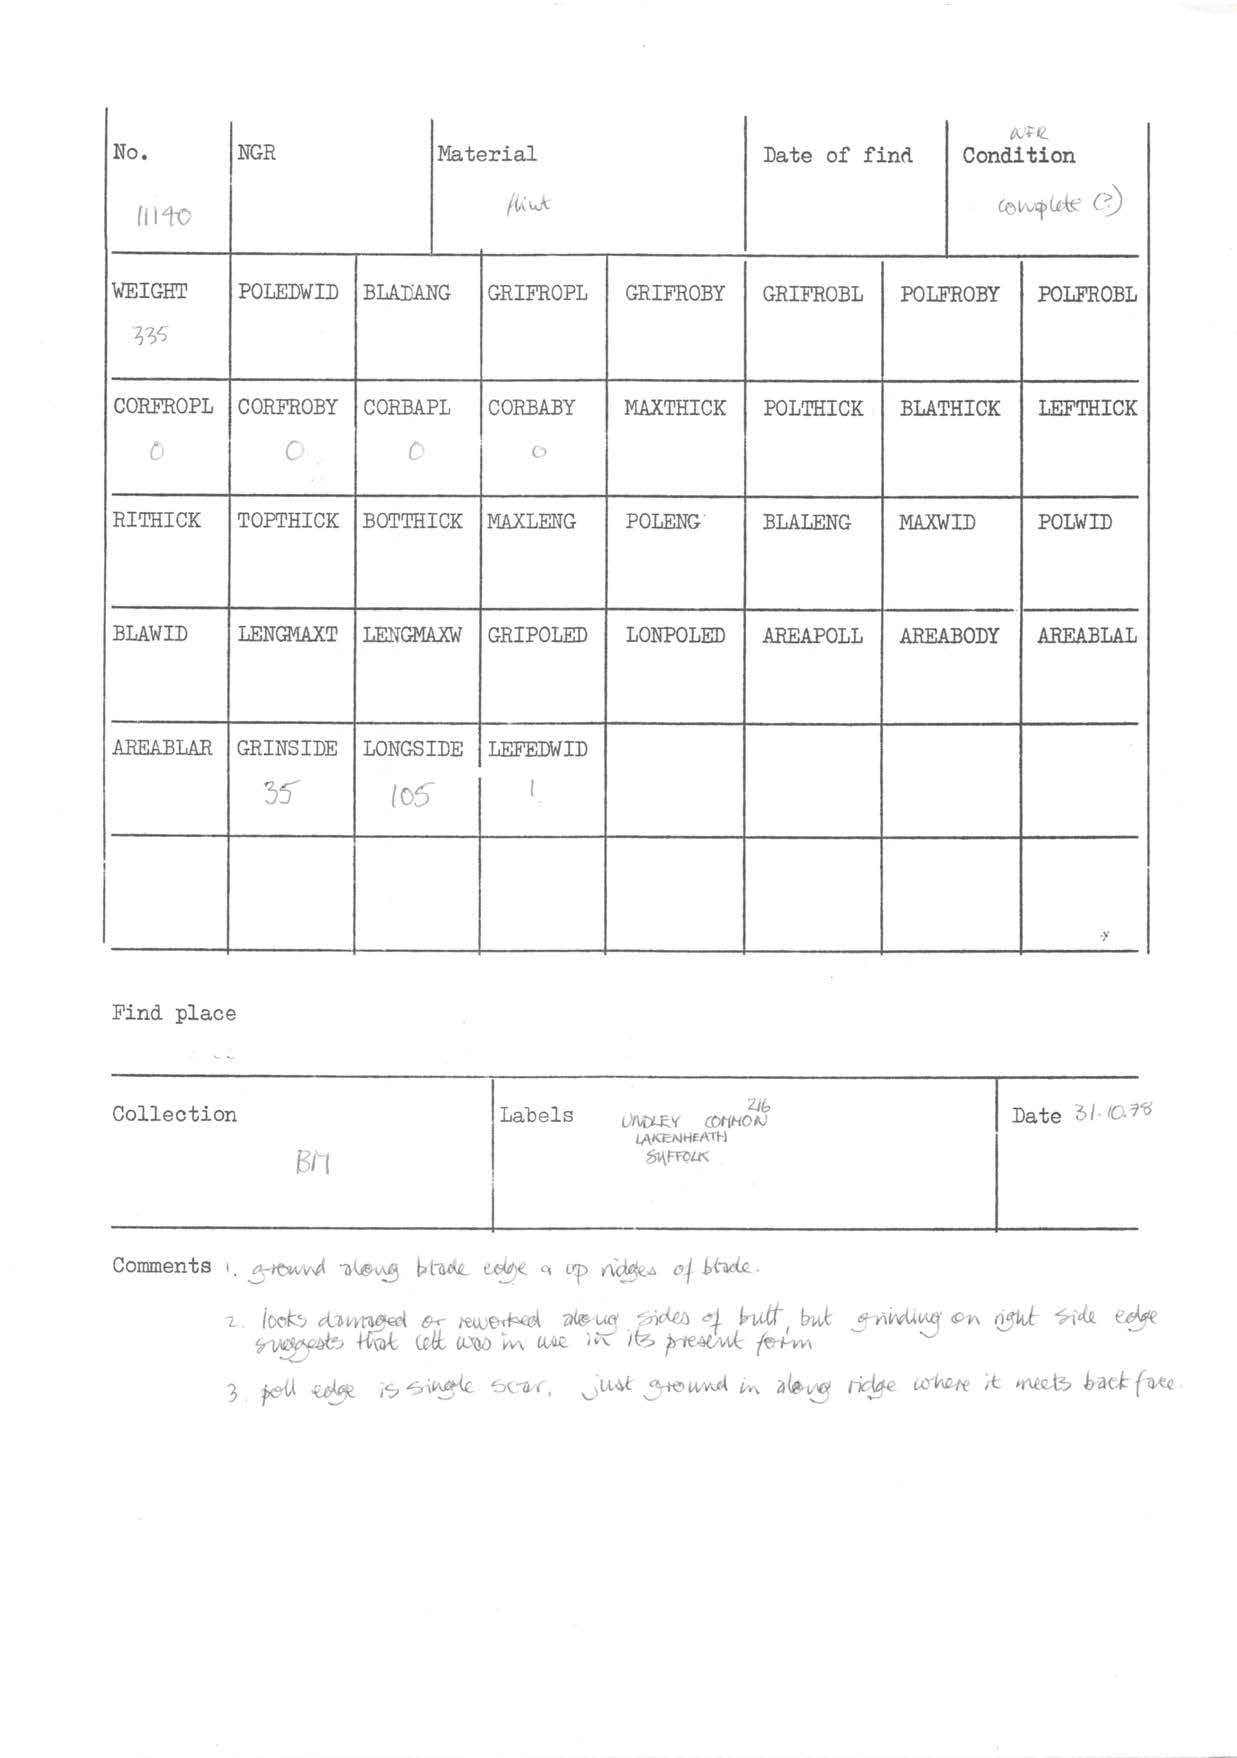 No. NGR Material Date of find Condition
11190 flint complete (?)
WEIGHT POLEDWID BLADANG GRIFROPL GRIFROBY GRIFROBL POLFROBY POLFROBL
335
CORFROPL CORFROBY CORBAPL CORBABY MAXTHICK POLTHICK BLATHICK LEFTHICK
0 0 0 0
RITHICK TOPTHICK BOTTHICK MAXLENG POLENG BLALENG MAXWID POLWID
BLAWID LENGMAXT LENGMAXW GRIPOLED LONPOLED AREAPOLL AREABODY AREABLAL
AREABLAR GRINSIDE LONGSIDE LEFEDWID
35 105 1
Find place
Collection
BM
Labels
216
UNDLEY COMMON
LAKENHEATH
SUFFOLK
Date 31.10.78
Comments 1. ground along blade edge & up ridges of blade.
2. looks damaged or reworked along sides of butt, but grinding on right side edge
suggests that celt was in use in its present form
3. poll edge is single scar, just ground in along ridge where it meets back face.